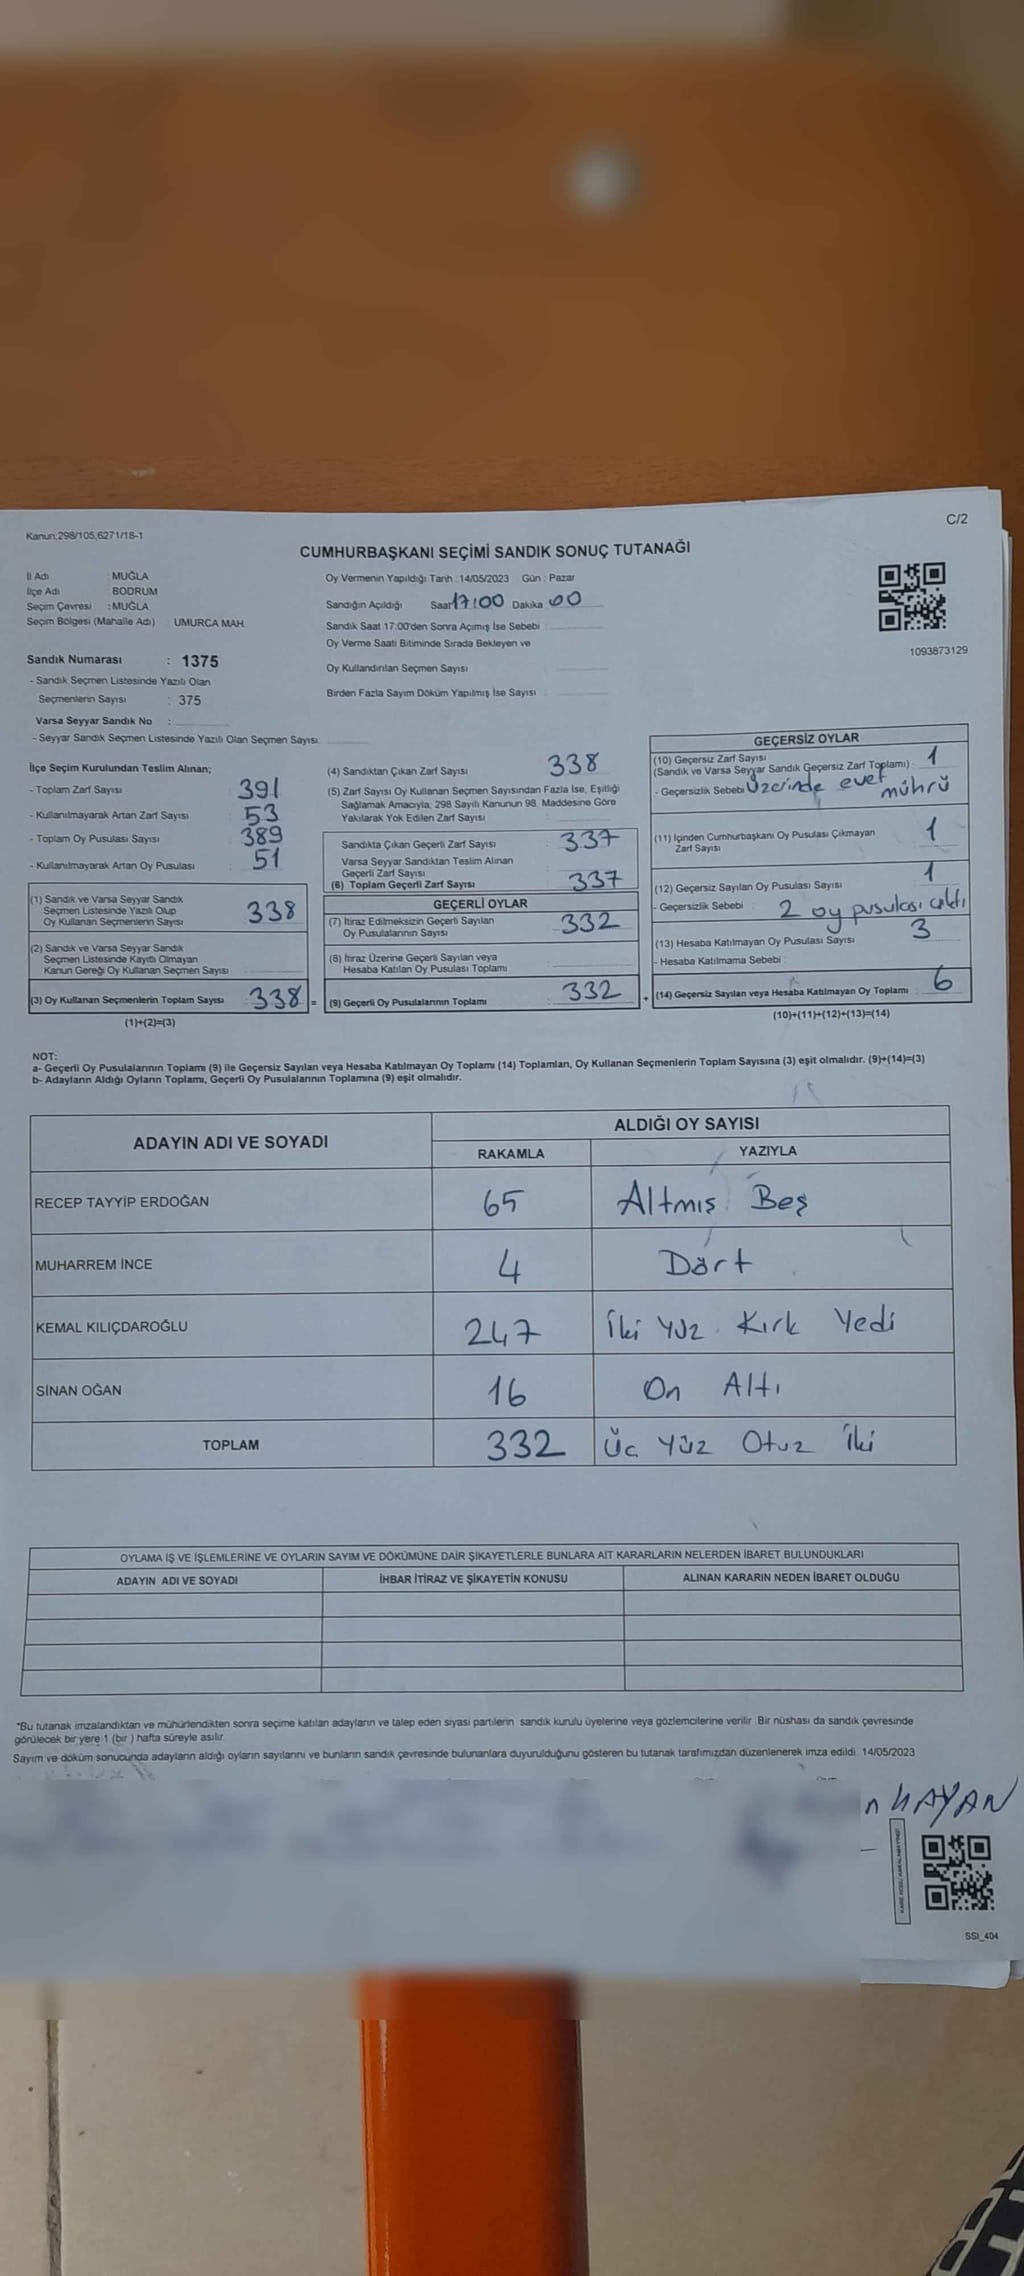 C/2
Kanun;298/105,6271/18-1
CUMHURBAŞKANI SEÇİMİ SANDIK SONUÇ TUTANAĞI
İl Adı : MUĞLA
İlçe Adı : BODRUM
Seçim Çevresi : MUĞLA
Seçim Bölgesi (Mahalle Adı) : UMURCA MAH.
Sandık Numarası : 1375
- Sandık Seçmen Listesinde Yazılı Olan
Seçmenlerin Sayısı : 375
Varsa Seyyar Sandık No :
- Seyyar Sandık Seçmen Listesinde Yazılı Olan Seçmen Sayısı:
Oy Vermenin Yapıldığı Tarih : 14/05/2023 Gün : Pazar
Sandığın Açıldığı Saat 17:00 Dakika 00
Sandık Saat 17:00'den Sonra Açımış İse Sebebi :
Oy Verme Saati Bitiminde Sırada Bekleyen ve
Oy Kullandırılan Seçmen Sayısı :
Birden Fazla Sayım Döküm Yapılmış İse Sayısı :
1093873129
İlçe Seçim Kurulundan Teslim Alınan;
- Toplam Zarf Sayısı : 391
- Kullanılmayarak Artan Zarf Sayısı : 53
- Toplam Oy Pusulası Sayısı : 389
- Kullanılmayarak Artan Oy Pusulası : 51
(1) Sandık ve Varsa Seyyar Sandık
Seçmen Listesinde Yazılı Olup
Oy Kullanan Seçmenlerin Sayısı : 338
(2) Sandık ve Varsa Seyyar Sandık
Seçmen Listesinde Kayıtlı Olmayan
Kanun Gereği Oy Kullanan Seçmen Sayısı
(3) Oy Kullanan Seçmenlerin Toplam Sayısı : 338 =
(1)+(2)=(3)
(4) Sandıktan Çıkan Zarf Sayısı : 338
(5) Zarf Sayısı Oy Kullanan Seçmen Sayısından Fazla İse, Eşitliği
Sağlamak Amacıyla; 298 Sayılı Kanunun 98. Maddesine Göre
Yakılarak Yok Edilen Zarf Sayısı :
Sandıkta Çıkan Geçerli Zarf Sayısı : 337
Varsa Seyyar Sandıktan Teslim Alınan
Geçerli Zarf Sayısı
(6) Toplam Geçerli Zarf Sayısı : 337
GEÇERLİ OYLAR
(7) İtiraz Edilmeksizin Geçerli Sayılan
Oy Pusulalarının Sayısı : 332
(8) İtiraz Üzerine Geçerli Sayılan veya
Hesaba Katılan Oy Pusulası Toplamı :
(9) Geçerli Oy Pusulalarının Toplamı : 332 +
GEÇERSİZ OYLAR
(10) Geçersiz Zarf Sayısı
(Sandık ve Varsa Seyyar Sandık Geçersiz Zarf Toplamı) : 1
- Geçersizlik Sebebi Üzerinde evet
mührü
(11) İçinden Cumhurbaşkanı Oy Pusulası Çıkmayan
Zarf Sayısı : 1
(12) Geçersiz Sayılan Oy Pusulası Sayısı : 1
- Geçersizlik Sebebi : 2 oy pusulası çıktı
(13) Hesaba Katılmayan Oy Pusulası Sayısı : 3
- Hesaba Katılmama Sebebi :
(14) Geçersiz Sayılan veya Hesaba Katılmayan Oy Toplamı : 6
(10)+(11)+(12)+(13)=(14)
NOT:
a- Geçerli Oy Pusulalarının Toplamı (9) ile Geçersiz Sayılan veya Hesaba Katılmayan Oy Toplamı (14) Toplamları, Oy Kullanan Seçmenlerin Toplam Sayısına (3) eşit olmalıdır. (9)+(14)=(3)
b- Adayların Aldığı Oyların Toplamı, Geçerli Oy Pusulalarının Toplamına (9) eşit olmalıdır.
ADAYIN ADI VE SOYADI
ALDIĞI OY SAYISI
RAKAMLA YAZIYLA
RECEP TAYYİP ERDOĞAN 65 Altmış Beş
MUHARREM İNCE 4 Dört
KEMAL KILIÇDAROĞLU 247 İki Yüz Kırk Yedi
SİNAN OĞAN 16 On Altı
TOPLAM 332 Üç Yüz Otuz İki
OYLAMA İŞ VE İŞLEMLERİNE VE OYLARIN SAYIM VE DÖKÜMÜNE DAİR ŞİKAYETLERLE BUNLARA AİT KARARLARIN NELERDEN İBARET BULUNDUKLARI
ADAYIN ADI VE SOYADI İHBAR İTİRAZ VE ŞİKAYETİN KONUSU ALINAN KARARIN NEDEN İBARET OLDUĞU
*Bu tutanak imzalandıktan ve mühürlendikten sonra seçime katılan adayların ve talep eden siyasi partilerin sandık kurulu üyelerine veya gözlemcilerine verilir. Bir nüshası da sandık çevresinde
görülecek bir yere 1 (bir) hafta süreyle asılır.
Sayım ve döküm sonucunda adayların aldığı oyların sayılarını ve bunların sandık çevresinde bulunanlara duyurulduğunu gösteren bu tutanak tarafımızdan düzenlenerek imza edildi. 14/05/2023
SSI_404